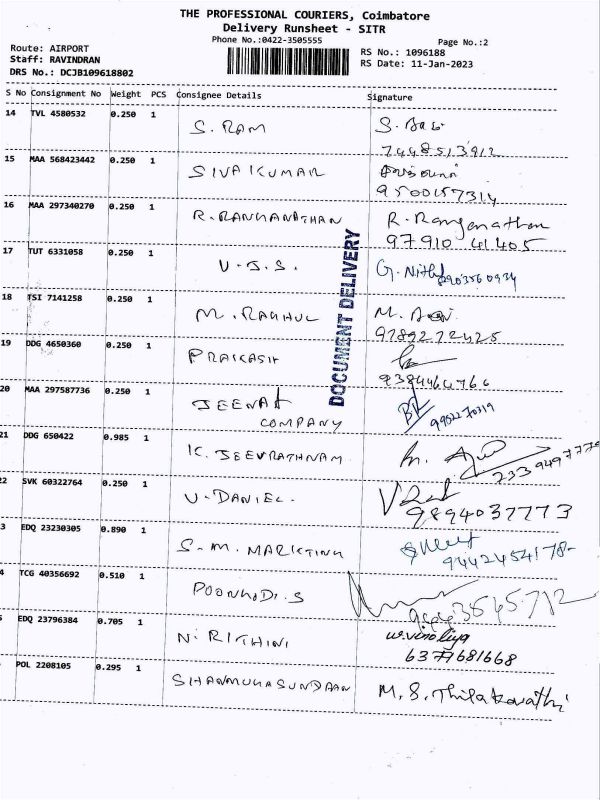 THE PROFESSIONAL COURIERS, Coimbatore
Delivery Runsheet - SITR
Phone No.:0422-3505555
Page No.:2
Route: AIRPORT
Staff: RAVINDRAN
DRS No.: DCJB109618802
RS No.: 1096188
RS Date: 11-Jan-2023
S No Consignment No Weight PCS Consignee Details Signature
14 TVL 4580532 0.250 1 S. RAM S.
7448513912
15 MAA 568423442 0.250 1 SIVAKUMAR
9500157314
16 MAA 297340270 0.250 1 R. RANGANATHAN R. Ranganathan
97910 41405
17 TUT 6331058 0.250 1 V.J.S. G. Nithi
18 TSI 7141258 0.250 1 M. RAGHUL M.
9789272425
19 DDG 4650360 0.250 1 PRAKASH
9384464766
20 MAA 297587736 0.250 1 JEENAH
COMPANY
9952270319
21 DDG 650422 0.985 1 K. JEEVRATHNAM
22 SVK 60322764 0.250 1 V. DANIEL.
9894037773
3 EDQ 23230305 0.890 1 S.M. MARKTING
9442454178-
4 TCG 40356692 0.510 1 POONKODI.S
EDQ 23796384 0.705 1 N. RITHINI
6377681668
POL 2208105 0.295 1 SHANMUGASUNDRAN M.S. Thilakavathi
DOCUMENT DELIVERY